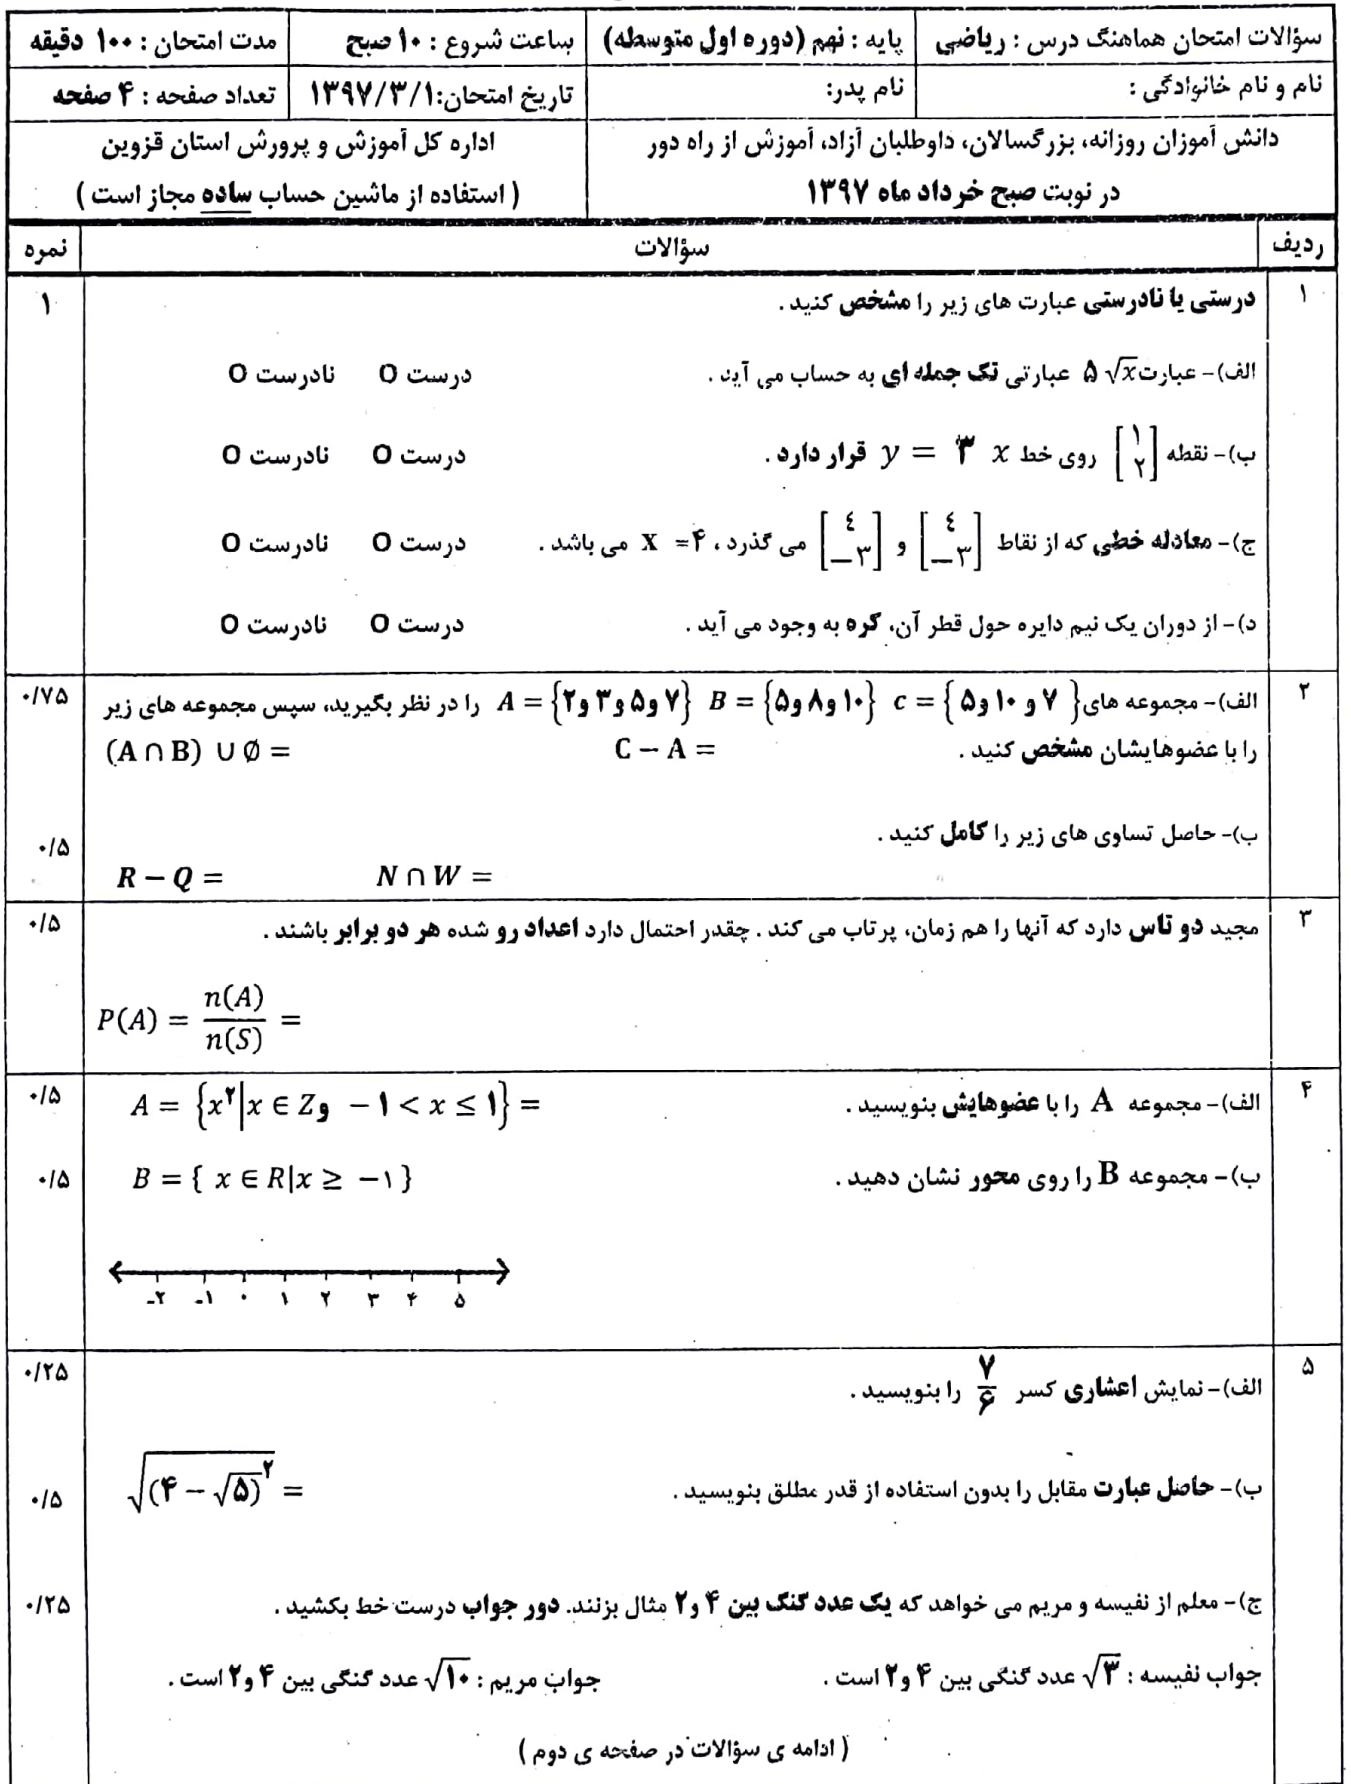 سؤالات امتحان هماهنگ درس : ریاضی | پایه : نهم (دوره اول متوسطه) | ساعت شروع : ۱۰ صبح | مدت امتحان : ۱۰۰ دقیقه
نام و نام خانوادگی : | نام پدر: | تاریخ امتحان:۱۳۹۷/۳/۱ | تعداد صفحه : ۴ صفحه
دانش آموزان روزانه، بزرگسالان، داوطلبان آزاد، آموزش از راه دور
در نوبت صبح خرداد ماه ۱۳۹۷
اداره کل آموزش و پرورش استان قزوین
( استفاده از ماشین حساب ساده مجاز است )
ردیف | سؤالات | نمره
۱ | درستی یا نادرستی عبارت های زیر را مشخص کنید . | ۱
الف)- عبارت ۵√x عبارتی تک جمله ای به حساب می آید . درست O نادرست O
ب)- نقطه [۱ ۲] روی خط y = ۳ x قرار دارد . درست O نادرست O
ج)- معادله خطی که از نقاط [٤ −۳] و [٤ −۳] می گذرد ، X = ۴ می باشد . درست O نادرست O
د)- از دوران یک نیم دایره حول قطر آن، کره به وجود می آید . درست O نادرست O
۲ | الف)- مجموعه های A = {۲و۳و۵و۷} B = {۵و۸و۱۰} c = {۵و ۱۰ و ۷} را در نظر بگیرید، سپس مجموعه های زیر | ۰/۷۵
را با عضوهایشان مشخص کنید . C − A = (A ∩ B) ∪ ∅ =
ب)- حاصل تساوی های زیر را کامل کنید . | ۰/۵
R − Q = N ∩ W =
۳ | مجید دو تاس دارد که آنها را هم زمان، پرتاب می کند . چقدر احتمال دارد اعداد رو شده هر دو برابر باشند . | ۰/۵
P(A) = n(A)/n(S) =
۴ | الف)- مجموعه A را با عضوهایش بنویسید . A = {x²|x ∈ Z و −۱ < x ≤ ۱} = | ۰/۵
ب)- مجموعه B را روی محور نشان دهید . B = { x ∈ R|x ≥ −۱ } | ۰/۵
-۲ -۱ ۰ ۱ ۲ ۳ ۴ ۵
۵ | الف)- نمایش اعشاری کسر ۷/۶ را بنویسید . | ۰/۲۵
ب)- حاصل عبارت مقابل را بدون استفاده از قدر مطلق بنویسید . √(۴ − √۵)² = | ۰/۵
ج)- معلم از نفیسه و مریم می خواهد که یک عدد گنگ بین ۴ و۲ مثال بزنند. دور جواب درست خط بکشید . | ۰/۲۵
جواب نفیسه : √۳ عدد گنگی بین ۴ و۲ است . جواب مریم : √۱۰ عدد گنگی بین ۴ و۲ است .
( ادامه ی سؤالات در صفحه ی دوم )